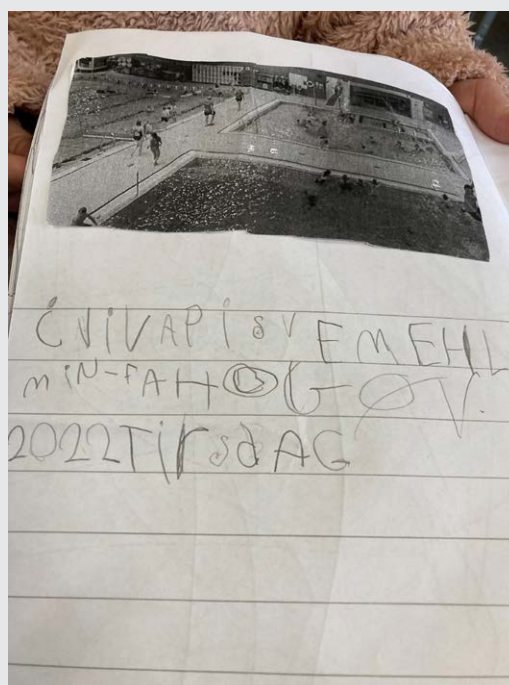 CVIVAPISVEMEHL
MIN-FAHOGØV.
2022TirsdAG